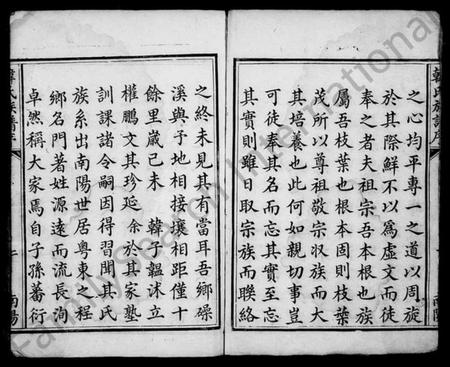 韓氏族譜序
之心均平專一之道以周旋
於其際鮮不以爲虛文而徒
奉之者夫祖宗吾本根也族
屬吾枝葉也根本固則枝葉
茂所以尊祖敬宗收族而大
其培養也此何如親切事豈
可徒奉其名而忘其實至忘
其實則雖日取宗族而聯絡
南陽
之終未見其有當耳吾鄉礤
溪與予地相接壤相距僅十
餘里歲已未 韓子韞沭立
權鵬文其珍延 余於其家塾
訓課諸令嗣因得習聞其氏
族系出南陽世居粵東之程
鄉名門著姓源遠而流長洵
卓然稱大家焉自子孫蕃衍
韓氏族譜序
一
南陽
FamilySearch International
FamilySearch International